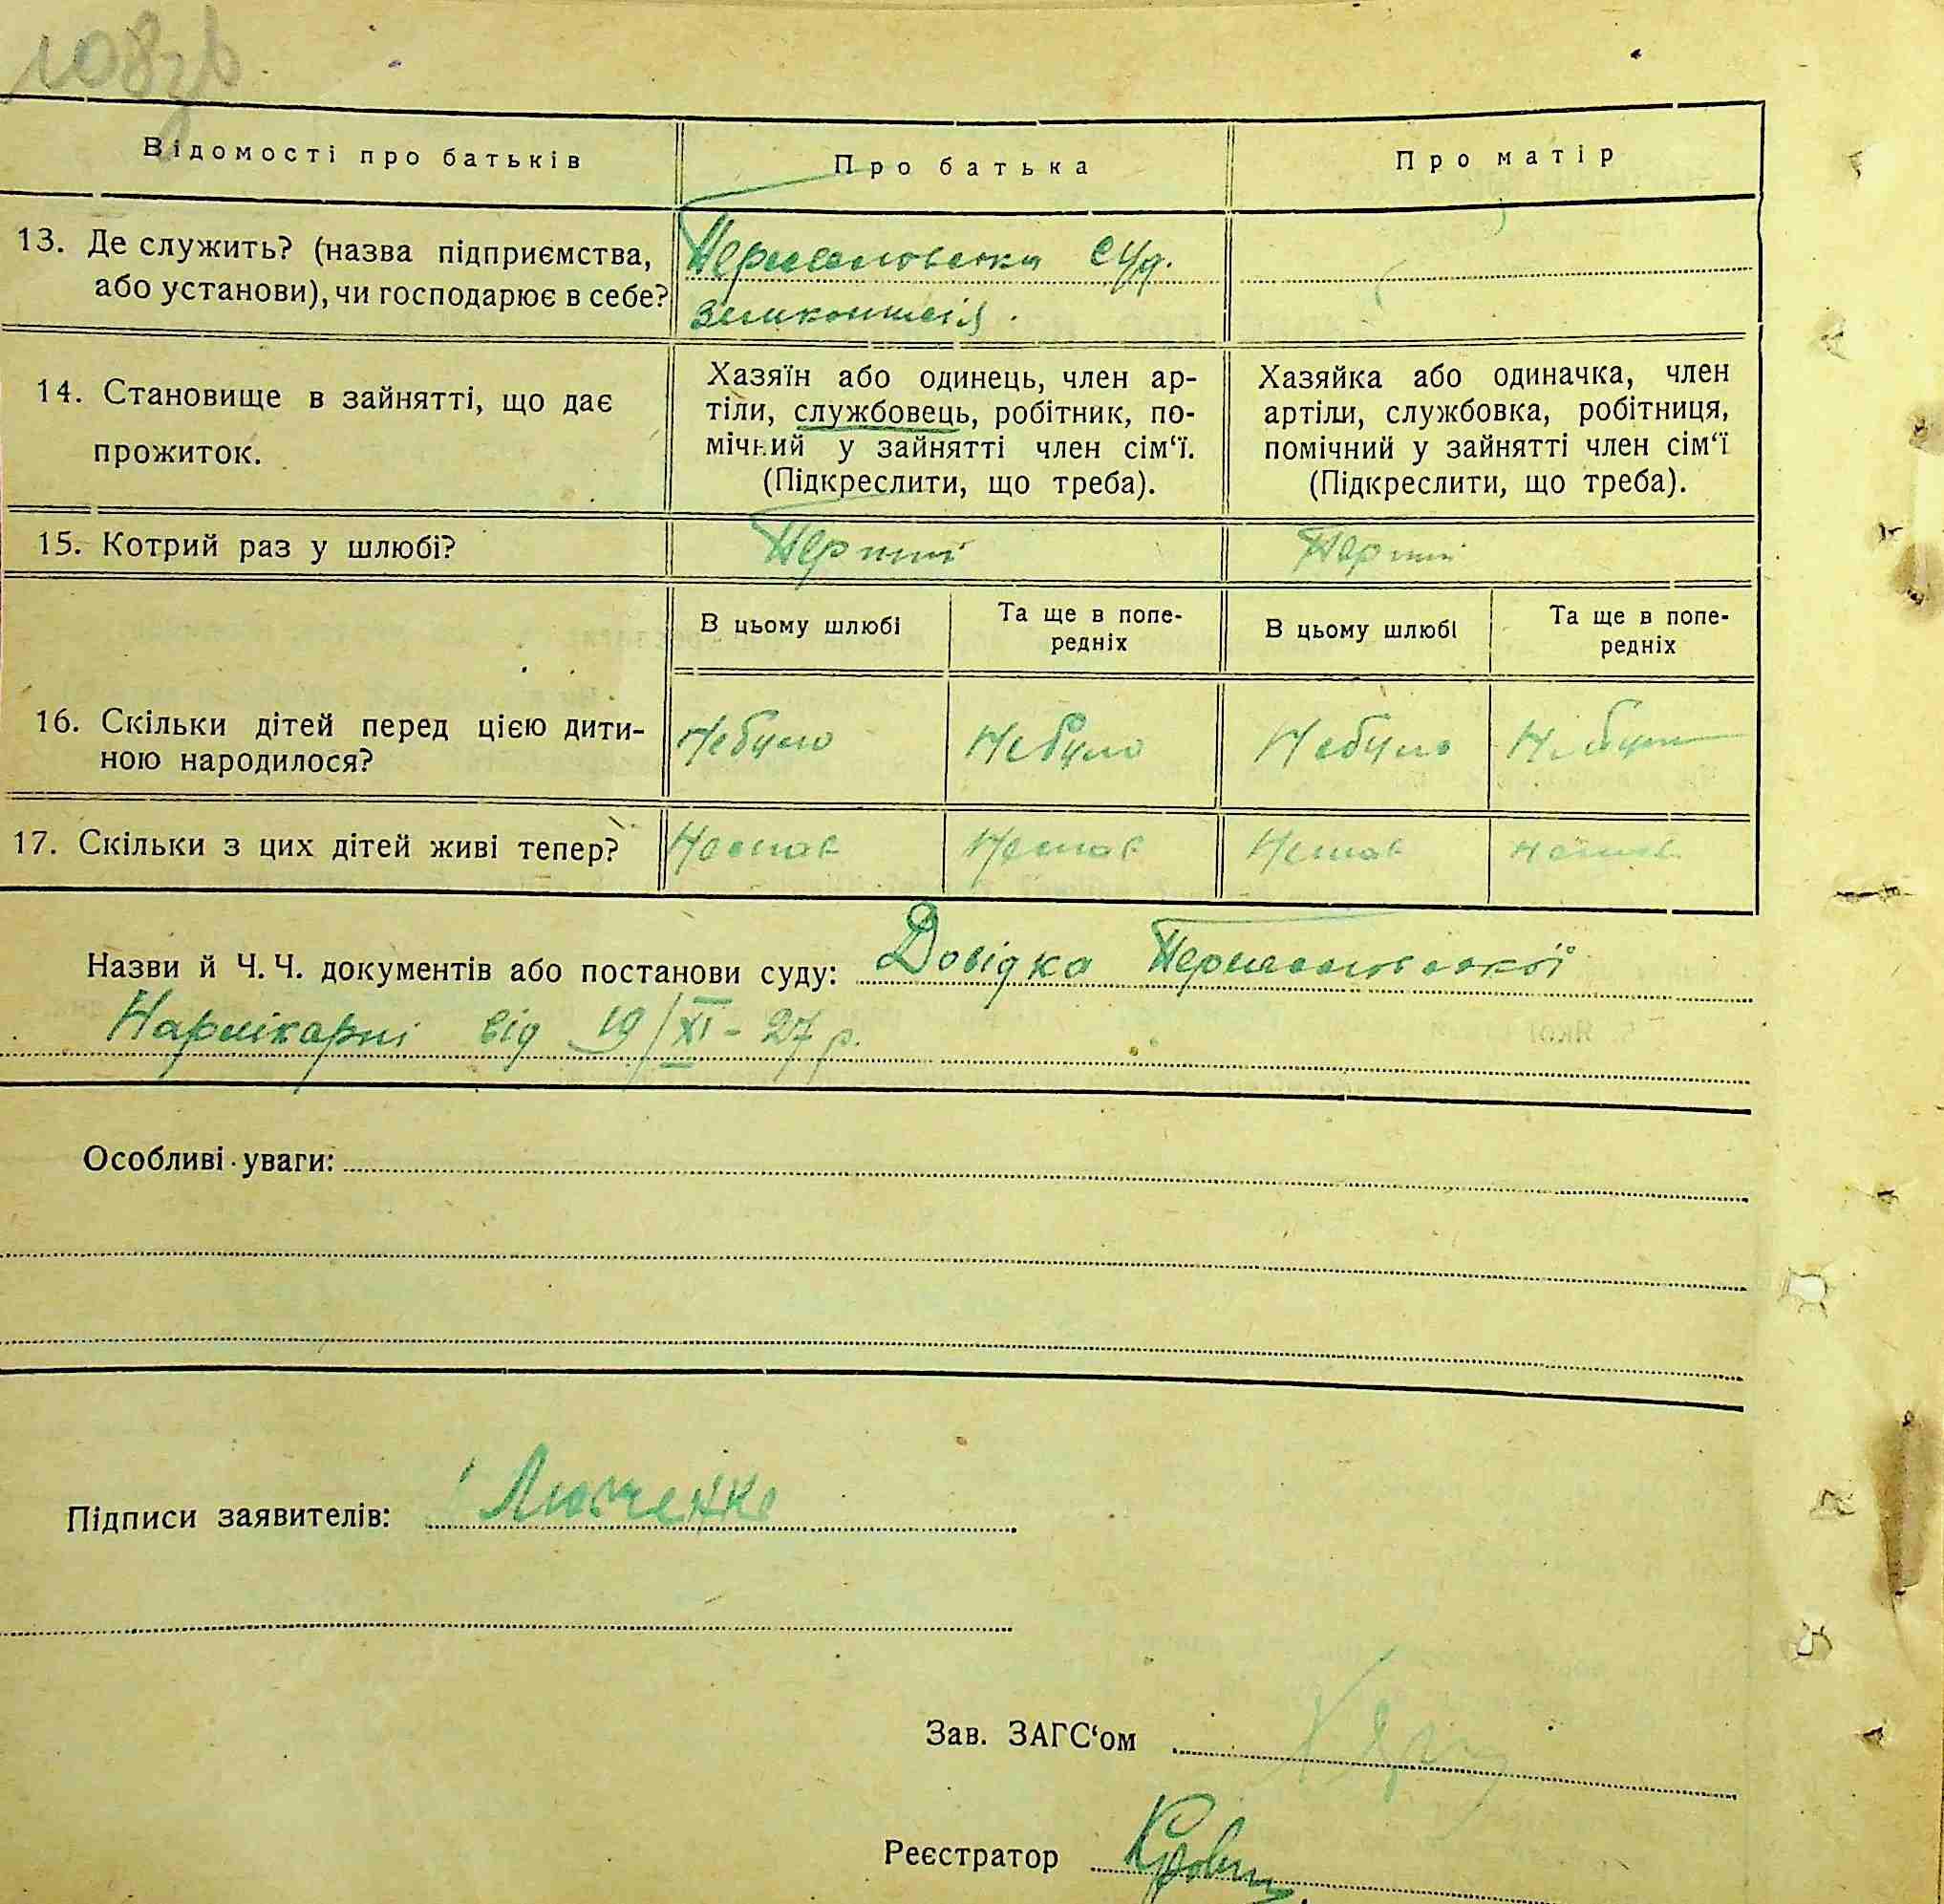 108зв
Відомості про батьків Про батька Про матір
13. Де служить? (назва підприємства, або установи), чи господарює в себе?
суд.
14. Становище в зайнятті, що дає прожиток.
Хазяїн або одинець, член ар-
тіли, службовець, робітник, по-
мічний у зайнятті член сім‘ї.
(Підкреслити, що треба).
Хазяйка або одиначка, член
артіли, службовка, робітниця,
помічний у зайнятті член сім‘ї
(Підкреслити, що треба).
15. Котрий раз у шлюбі? Перший Перший
В цьому шлюбі Та ще в попе-
редніх В цьому шлюбі Та ще в попе-
редніх
16. Скільки дітей перед цією дити-
ною народилося? Небуло Небуло Небуло Небуло
17. Скільки з цих дітей живі тепер? Немає Немає Немає Немає
Назви й Ч. Ч. документів або постанови суду: Довідка
Нарлікарні від 19/XI-27 р.
Особливі уваги:
Підписи заявителів:
Зав. ЗАГС‘ом
Реєстратор